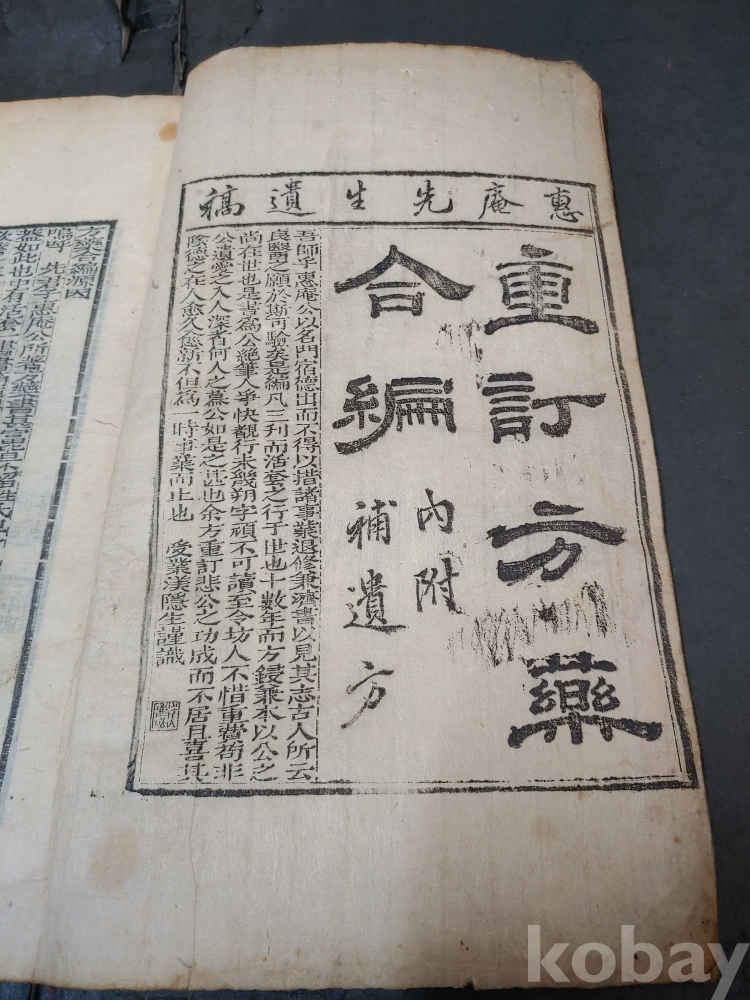 惠庵先生遺稿
重訂方藥
合編
內附
補遺方
吾師乎惠庵公以名門宿德出而不得以措諸事業退修兼濟書以見其志古人所云
良醫之願於斯可驗矣是編凡三刊而活套之行于世也十數年而方鋟兼本以公之
尚在世也是書爲公絶筆人爭快覩行未幾朔字頑不可讀至令坊人不惜重費苟非
公遺愛之人人深者何人之慕公如是之甚也余方重訂悲公之功成而不居且喜其
陰德之在人愈久愈新不但爲一時事業而止也 受業渼隱生謹識
方藥合編源因
嗚呼 先君子惠庵公所著
kobay